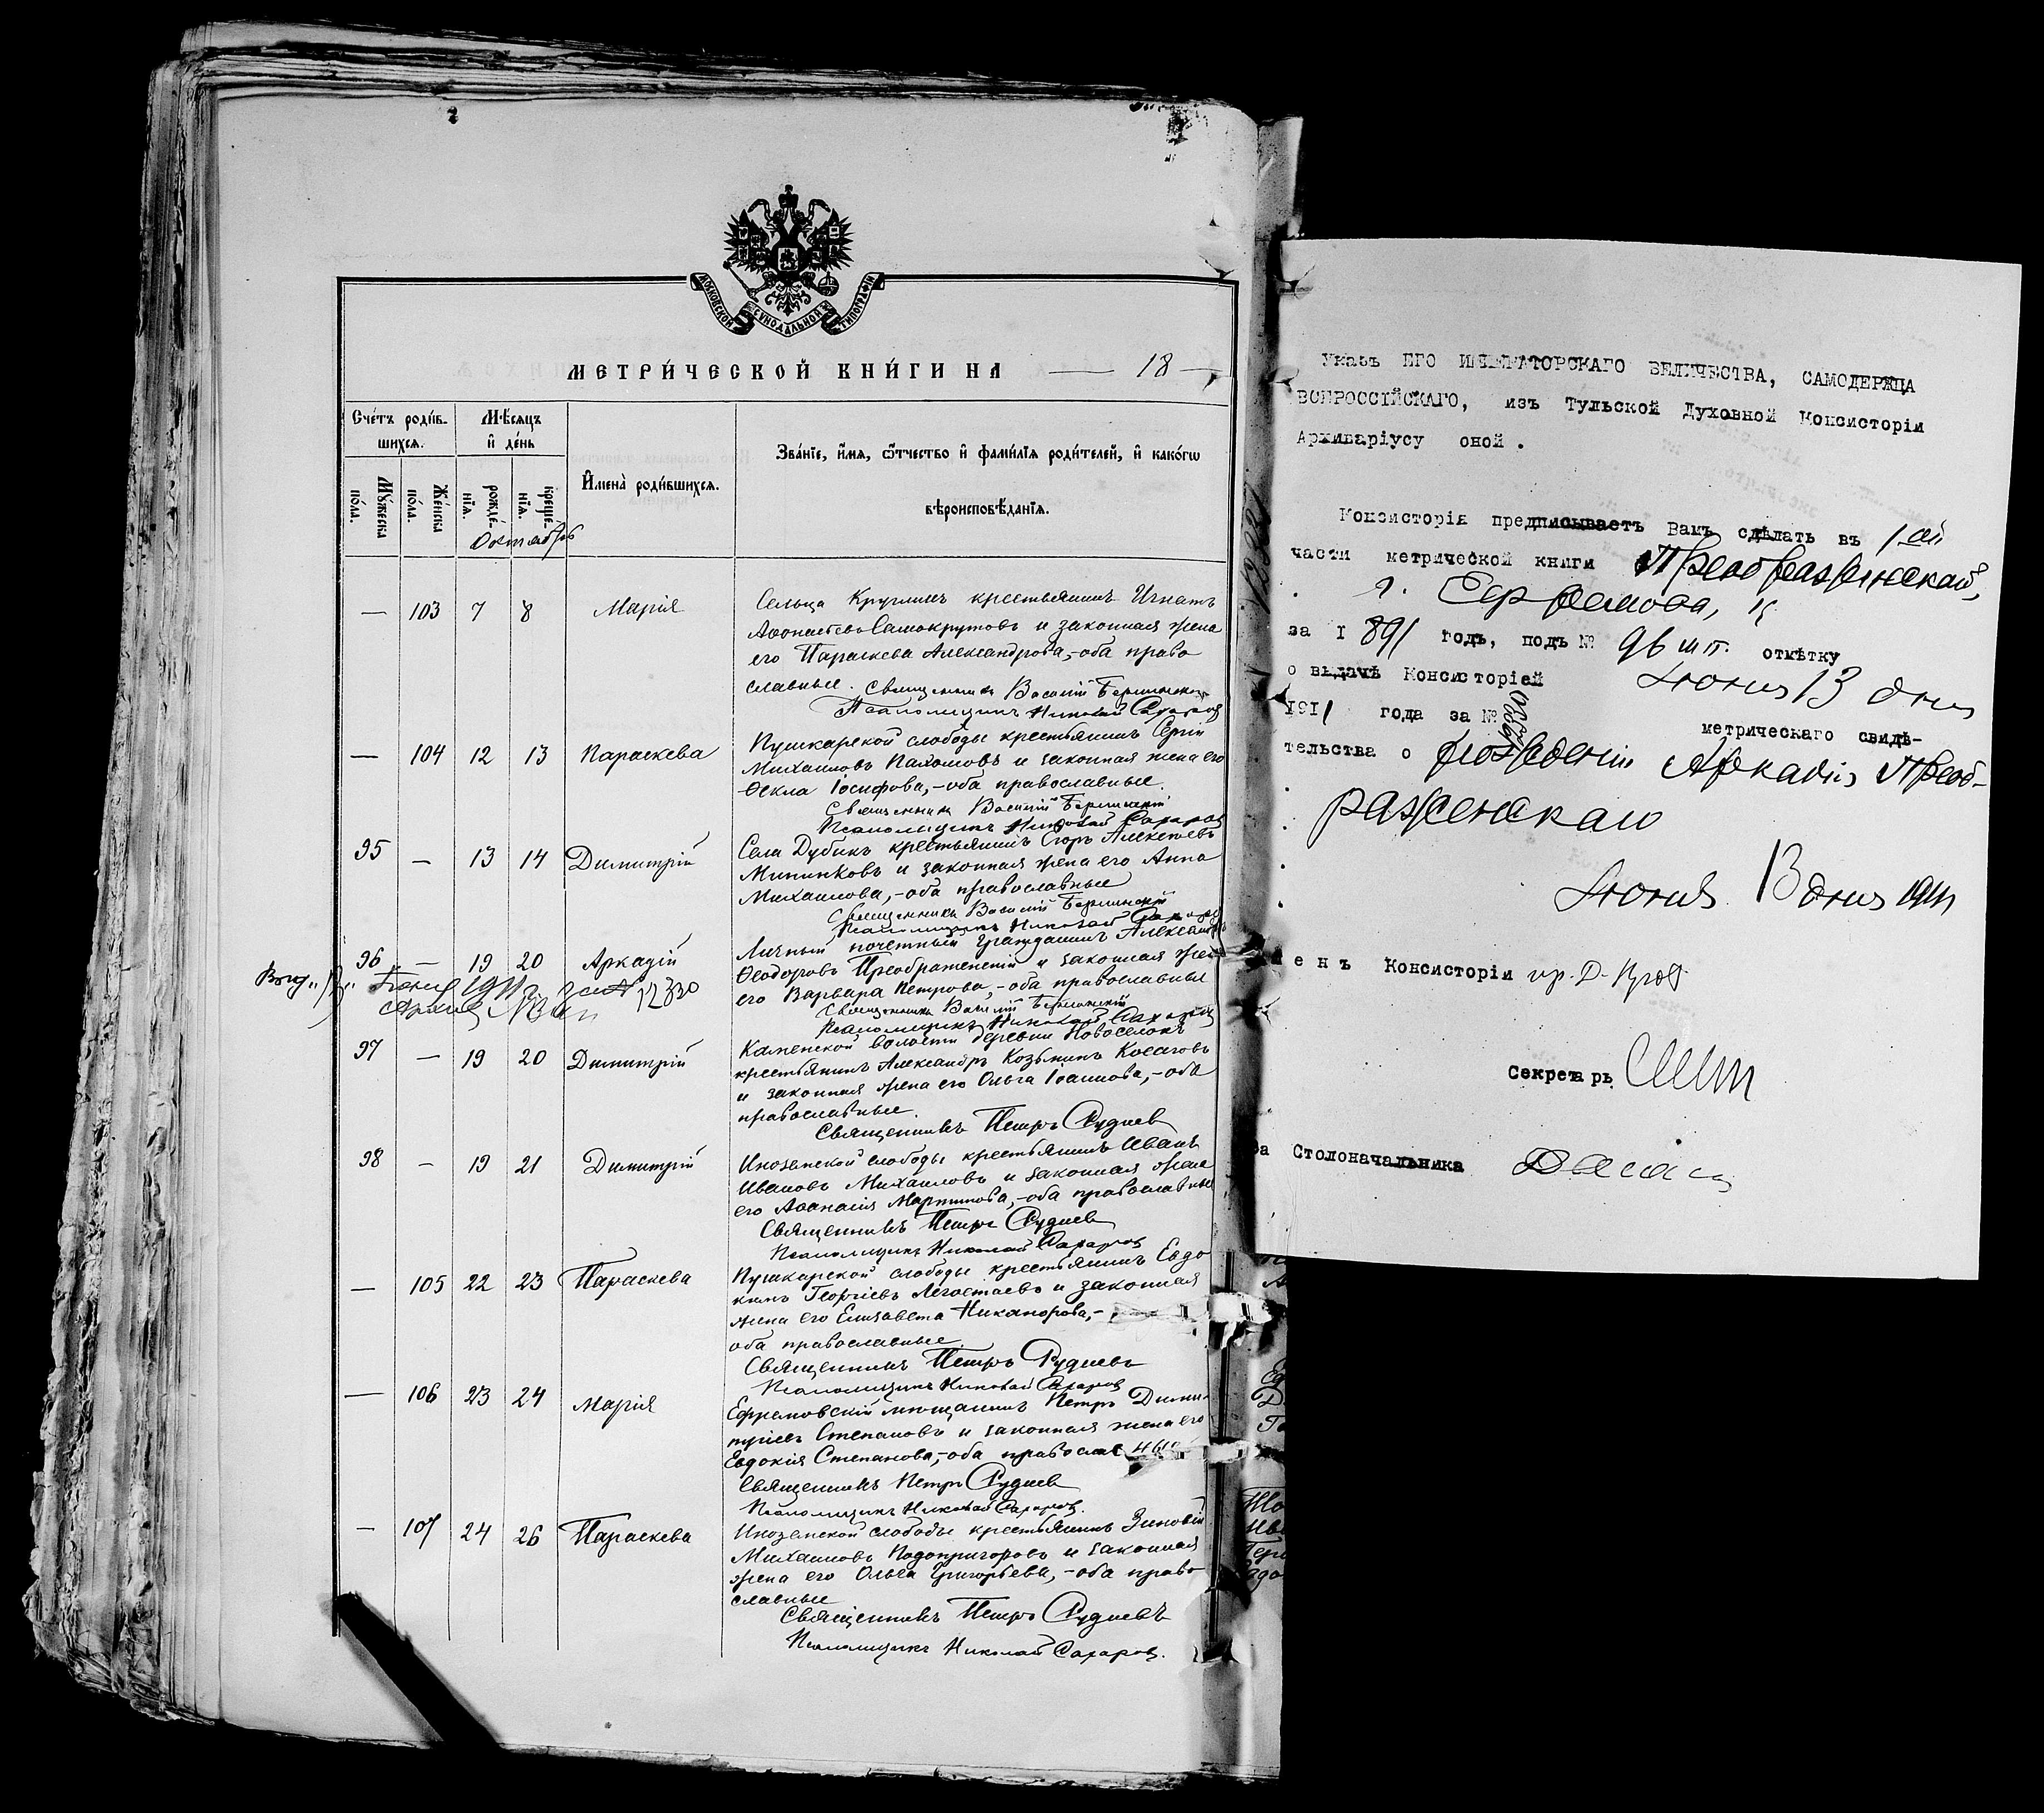 МОСКОВСКОЙ СѴНОДАЛЬНОЙ ТИПОГРАФІИ
МЕТРИ́ЧЕСКОЙ КНИ́ГИ НА — 18 —
Сче́тъ роди́в-
шихся.
Мѣ́сяцъ
и҆ де́нь
Му́жеска
по́ла.
Же́нска
по́ла.
рожде́-
нїя.
креще́-
нїя.
И҆мена̀ роди́вшихся.
Зва́нїе, и҆́мя, ѻ҆́тчество и҆ фами́лїя роди́телей, и҆ како́гѡ
вѣроисповѣ́данїя.
Октябрь
— 103 7 8 Марія
Сельца Кругликъ крестьянинъ Игнатъ
Аѳонасьевъ Самокрутовъ и законная жена
его Параскева Александрова,-оба право
славные. Священникъ Василій
Псаломщикъ Николай Сахаровъ
— 104 12 13 Параскева
Пушкарской слободы крестьянинъ Сергій
Михаиловъ Пахомовъ и законная жена его
Ѳекла Іосифова,-оба православные.
Священникъ Василій
Псаломщикъ Николай Сахаровъ
95 — 13 14 Димитрій
Села Дубикъ крестьянинъ Егоръ Алексѣевъ
и законная жена его Анна
Михаилова,-оба православные
Священникъ Василій
Псаломщикъ Николай Сахаровъ
96 — 19 20 Аркадій
Личный почетный гражданинъ Александръ
Ѳеодоровъ Преображенскій и законная жена
его Варвара Петрова,-оба православные
Священникъ Василій
Псаломщикъ Николай Сахаровъ
Выд. 13 Іюня 1911 г. за № 12330
97 — 19 20 Димитрій
Каменской волости деревни Новоселокъ
крестьянинъ Александръ Козьминъ Косаговъ
и законная жена его Ольга Іоаннова,-оба
православные.
Священникъ Петръ Рудневъ
98 — 19 21 Димитрій
Иноземской слободы крестьянинъ Иванъ
Ивановъ Михаиловъ и законная жена
его Аѳанасія Мартинова,-оба православные
Священникъ Петръ Рудневъ
Псаломщикъ Николай Сахаровъ
— 105 22 23 Параскева
Пушкарской слободы крестьянинъ Евдо
кимъ Георгіевъ Легостаевъ и законная
жена его Елисавета Никанорова,-
оба православные
Священникъ Петръ Рудневъ
Псаломщикъ Николай Сахаровъ
— 106 23 24 Марія
Ефремовскій мѣщанинъ Петръ Дими-
тріевъ Степановъ и законная жена его
Евдокія Степанова,-оба православные
Священникъ Петръ Рудневъ
Псаломщикъ Николай Сахаровъ.
— 107 24 26 Параскева
Иноземской слободы крестьянинъ Зиновій
Михаиловъ Подопригоровъ и законная
жена его Ольга Григорьева,-оба право
славные
Священникъ Петръ Рудневъ
Псаломщикъ Николай Сахаровъ.
Указъ ЕГО ИМПЕРАТОРСКАГО ВЕЛИЧЕСТВА, САМОДЕРЖЦА
ВСЕРОССІЙСКАГО, изъ Тульской Духовной Консисторіи
Архиваріусу оной.
Консисторія предписываетъ Вамъ сдѣлать въ 1ой
части метрической книги Преображенской,
г. Ефремова, ц
за 1891 годъ, подъ № 96 м п. отмѣтку
о выдачѣ Консисторіей Іюня 13 дня
1911 года за № 12330 метрическаго свидѣ-
тельства о рожденіи Аркадія Преоб-
раженскаго
Іюня 13 дня 1911
енъ Консисторіи пр. Д.
Секретарь
За Столоначальника